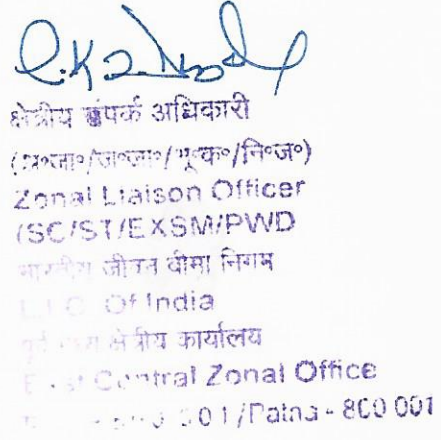 क्षेत्रीय संपर्क अधिकारी
(अ॰जा॰/ज॰जा॰/भू॰क॰/नि॰ज॰)
Zonal Liaison Officer
(SC/ST/EXSM/PWD
भारतीय जीवन बीमा निगम
L.I.C. Of India
पूर्व मध्य क्षेत्रीय कार्यालय
East Central Zonal Office
001/Patna - 800 001